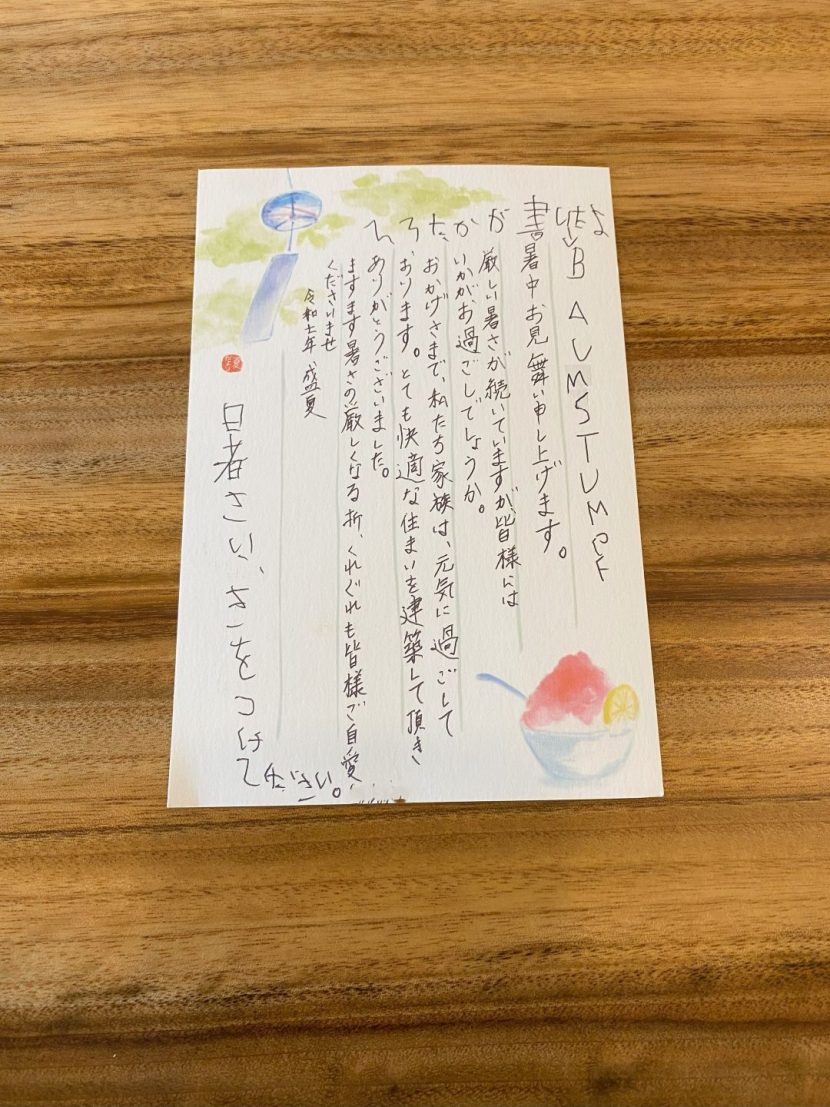 BAUMSTUMPF
書
暑中お見舞い申し上げます。
が
厳しい暑さが続いていますが、皆様には
か
いかがお過ごしでしょうか。
た
おかげさまで、私たち家族は、元気に過ごして
ろ
おります。とても快適な住まいを建築して頂き
ありがとうございました。
ますます暑さの厳しくなる折、くれぐれも皆様ご自愛
くださいませ
令和七年 盛夏
暑さい、きをつけて
ください。